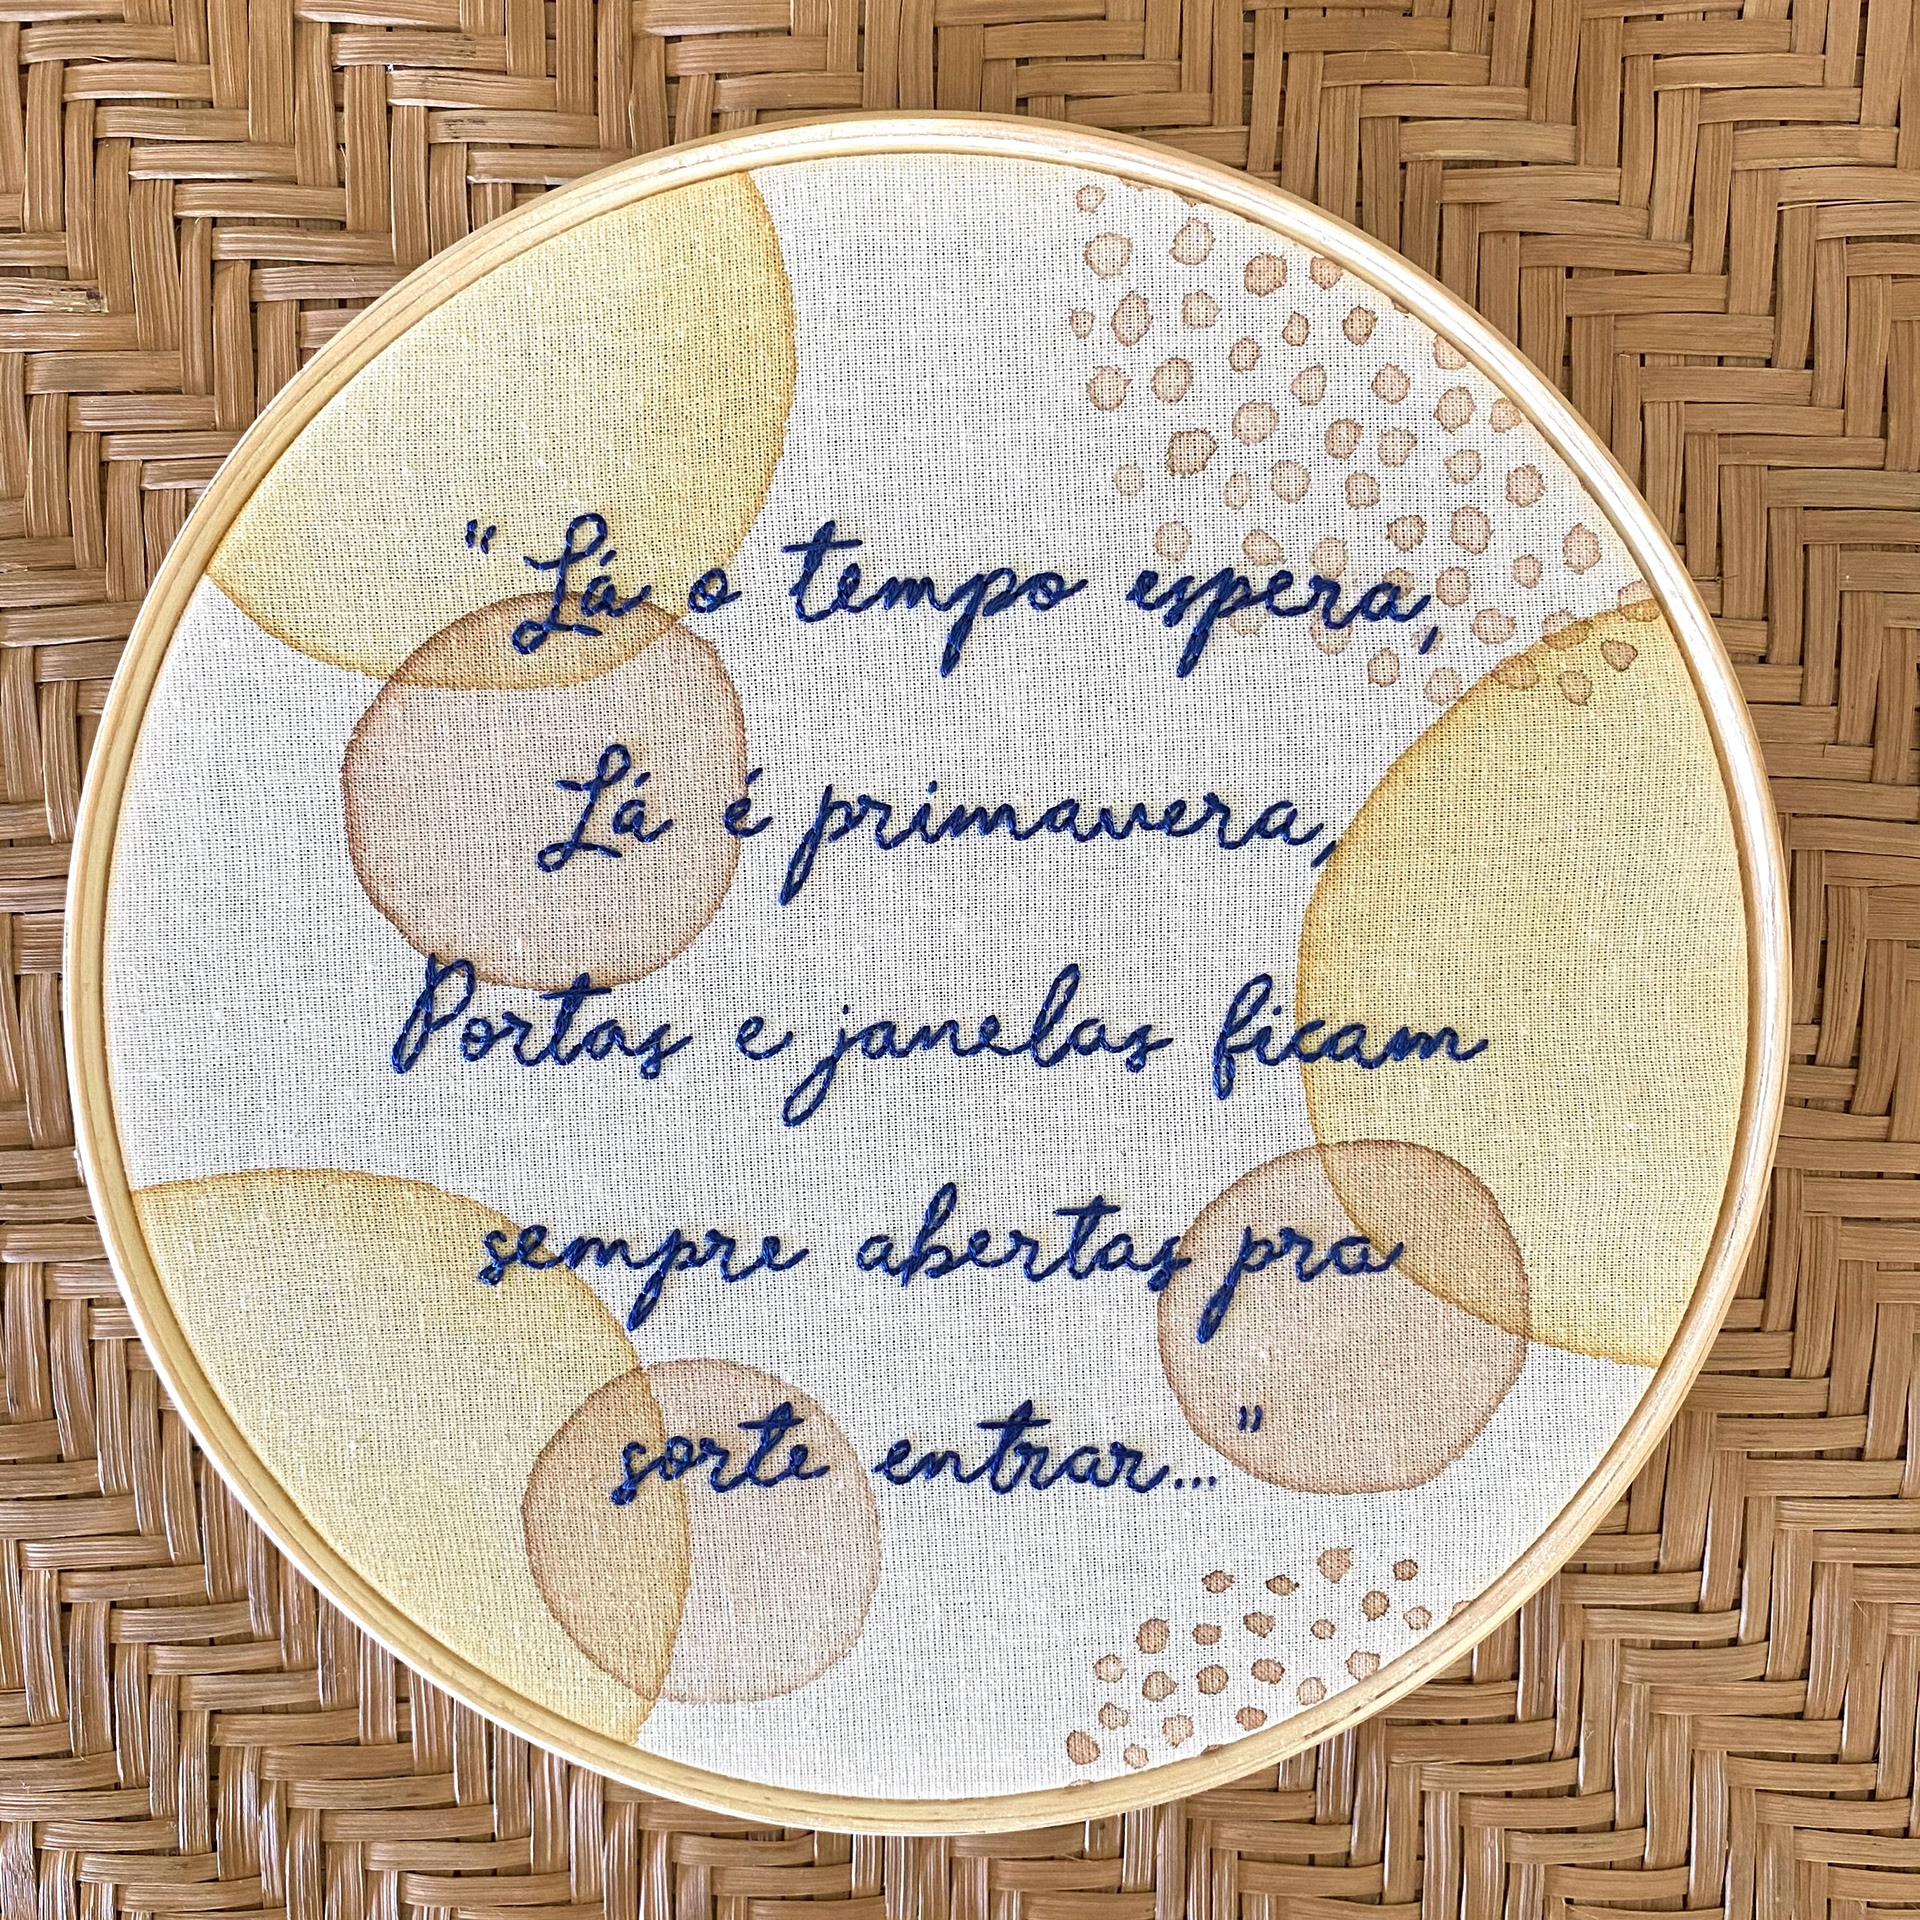 "Lá o tempo espera,
Lá é primavera,
Portas e janelas ficam
sempre abertas pra
sorte entrar..."